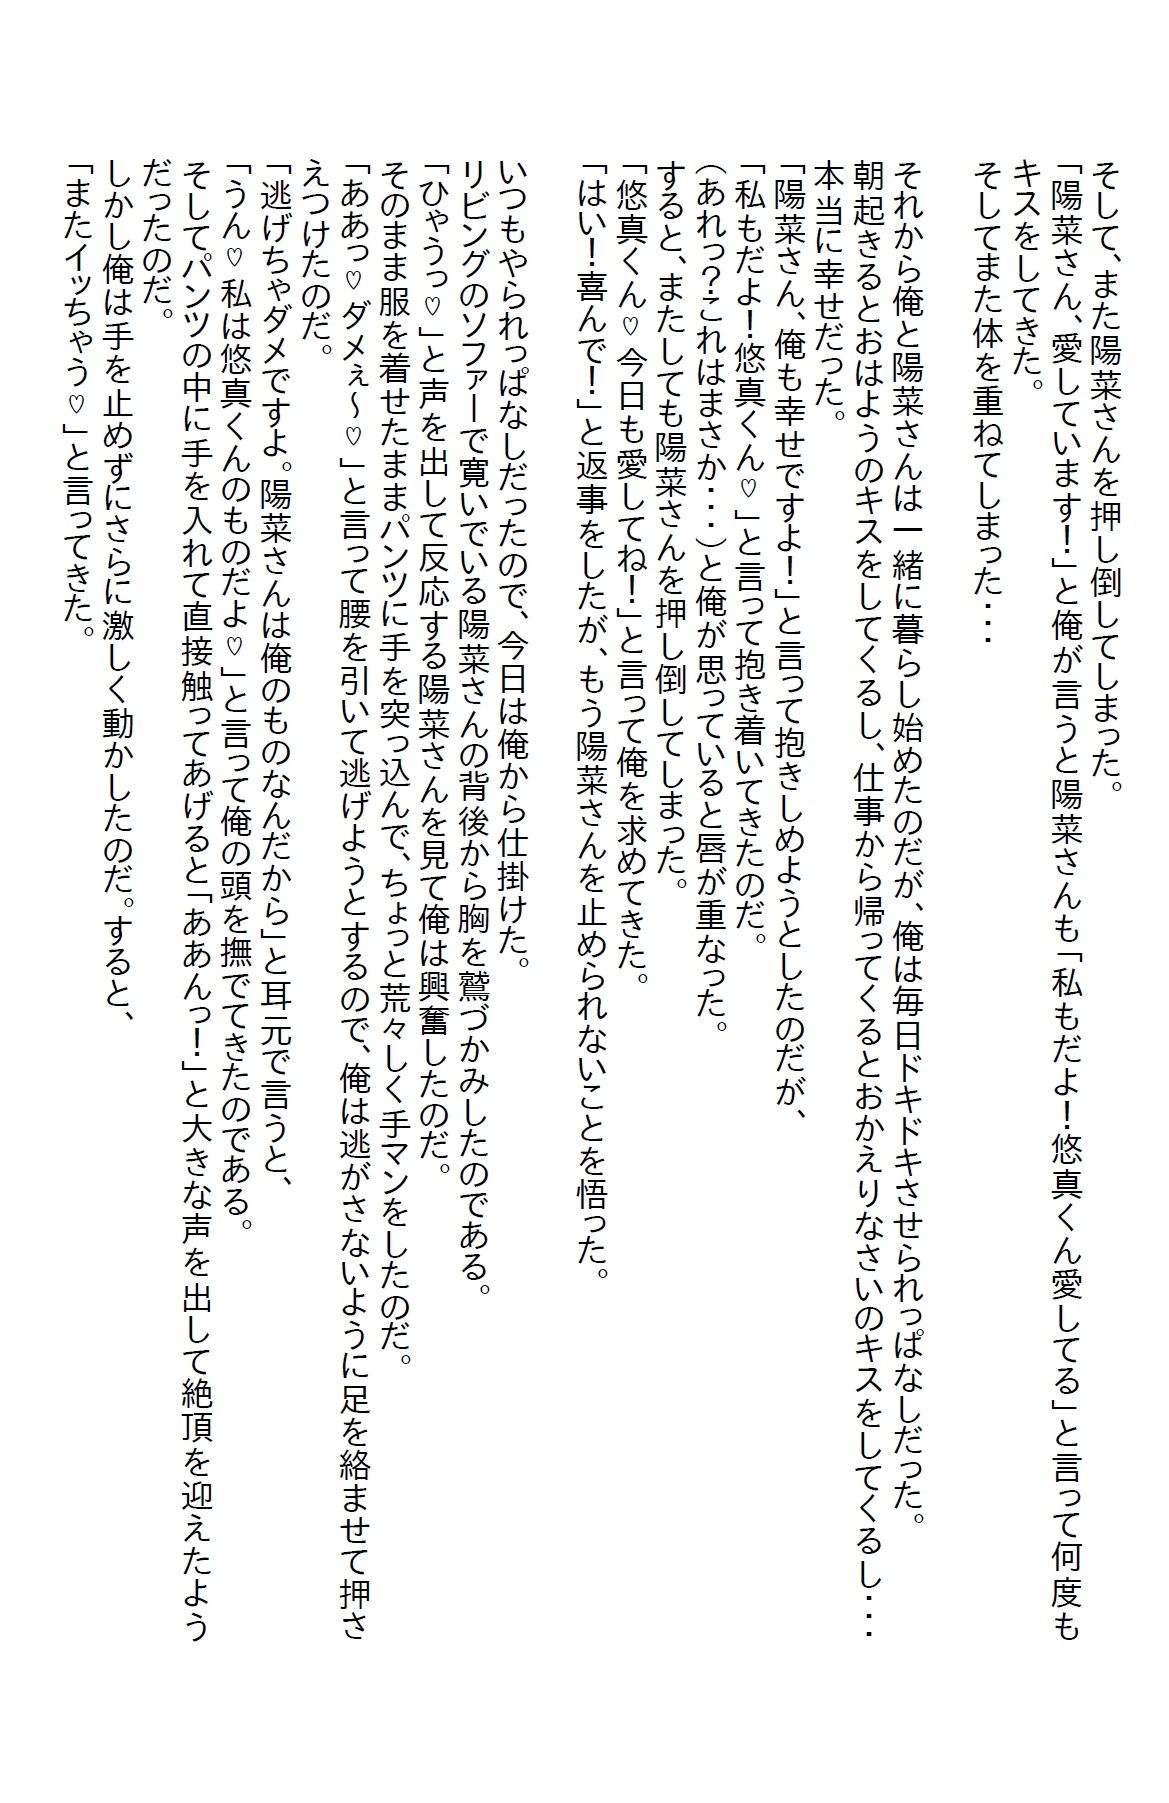 そして、また陽菜さんを押し倒してしまった。
「陽菜さん、愛しています！」と俺が言うと陽菜さんも「私もだよ！悠真くん愛してる」と言って何度も
キスをしてきた。
そしてまた体を重ねてしまった・・・
それから俺と陽菜さんは一緒に暮らし始めたのだが、俺は毎日ドキドキさせられっぱなしだった。
朝起きるとおはようのキスをしてくるし、仕事から帰ってくるとおかえりなさいのキスをしてくるし・・・
本当に幸せだった。
「陽菜さん、俺も幸せですよ！」と言って抱きしめようとしたのだが、
「私もだよ！悠真くん♡」と言って抱き着いてきたのだ。
（あれっ？これはまさか・・・）と俺が思っていると唇が重なった。
すると、またしても陽菜さんを押し倒してしまった。
「悠真くん♡今日も愛してね！」と言って俺を求めてきた。
「はい！喜んで！」と返事をしたが、もう陽菜さんを止められないことを悟った。
いつもやられっぱなしだったので、今日は俺から仕掛けた。
リビングのソファーで寛いでいる陽菜さんの背後から胸を鷲づかみしたのである。
「ひゃうっ♡」と声を出して反応する陽菜さんを見て俺は興奮したのだ。
そのまま服を着せたままパンツに手を突っ込んで、ちょっと荒々しく手マンをしたのだ。
「ああっ♡ダメぇ～♡」と言って腰を引いて逃げようとするので、俺は逃がさないように足を絡ませて押さ
えつけたのだ。
「逃げちゃダメですよ。陽菜さんは俺のものなんだから」と耳元で言うと、
「うん♡私は悠真くんのものだよ♡」と言って俺の頭を撫でてきたのである。
そしてパンツの中に手を入れて直接触ってあげると「ああんっ！」と大きな声を出して絶頂を迎えたよう
だったのだ。
しかし俺は手を止めずにさらに激しく動かしたのだ。すると、
「またイッちゃう♡」と言ってきた。